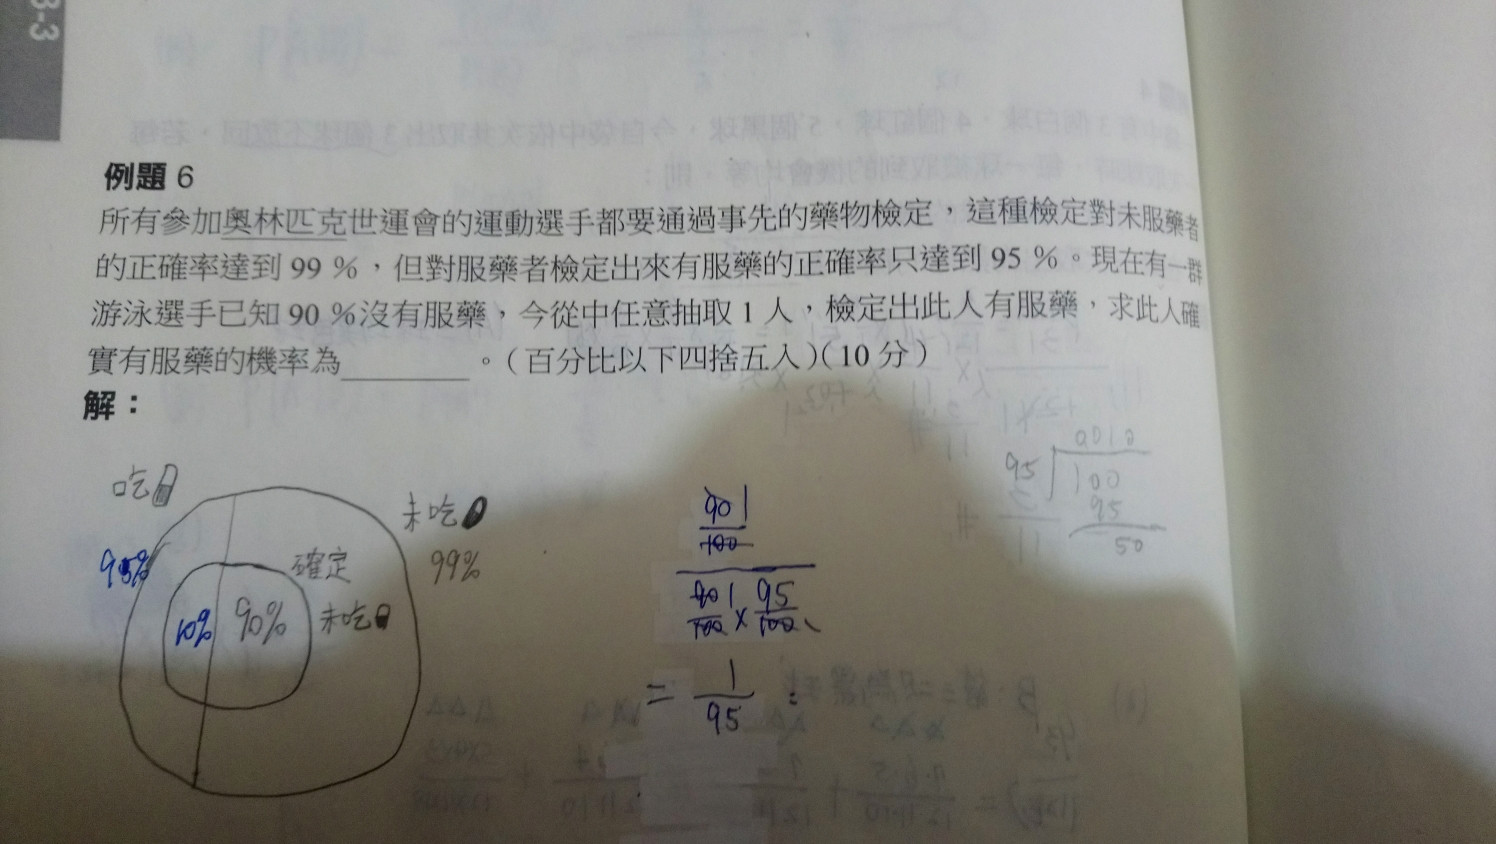 3-3
例題 6
所有參加奧林匹克世運會的運動選手都要通過事先的藥物檢定，這種檢定對未服藥者
的正確率達到 99 %，但對服藥者檢定出來有服藥的正確率只達到 95 %。現在有一群
游泳選手已知 90 %沒有服藥，今從中任意抽取 1 人，檢定出此人有服藥，求此人確
實有服藥的機率為________。（百分比以下四捨五入）（10 分）
解：
吃
未吃
95%
99%
確定
10%
90%
未吃
90 1
100
1 95
100 × 100
= 1
95
95 100
95
50